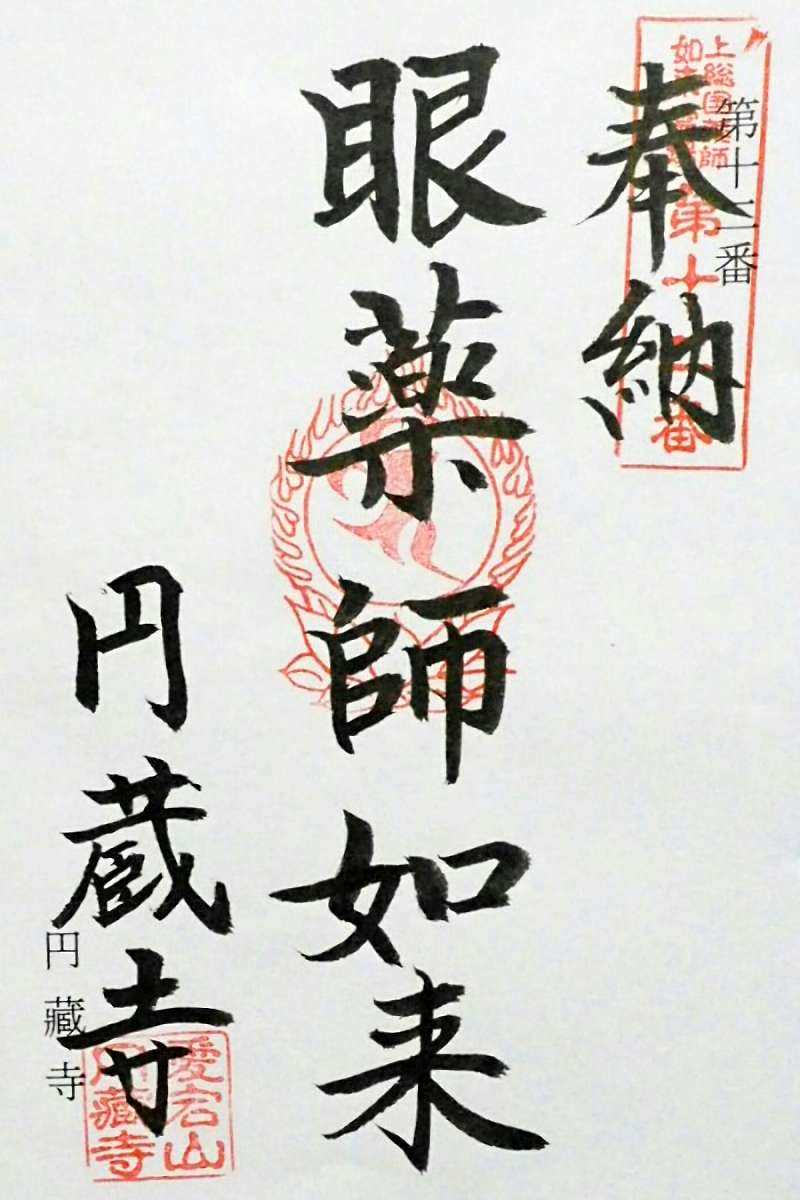 上総国薬師
如来霊場
第十三番
奉納
眼薬師如来
円蔵寺
円藏寺
愛宕山
円藏寺